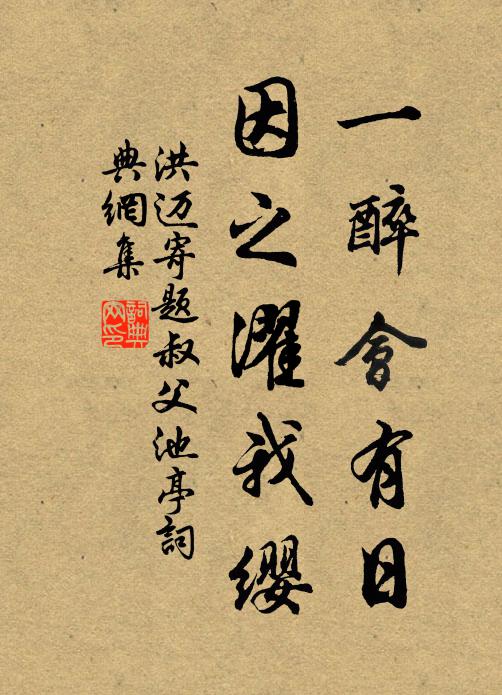 一醉會有日
因之濯我纓
洪迈寄题叔父池亭詞
典網集
詞典
网印